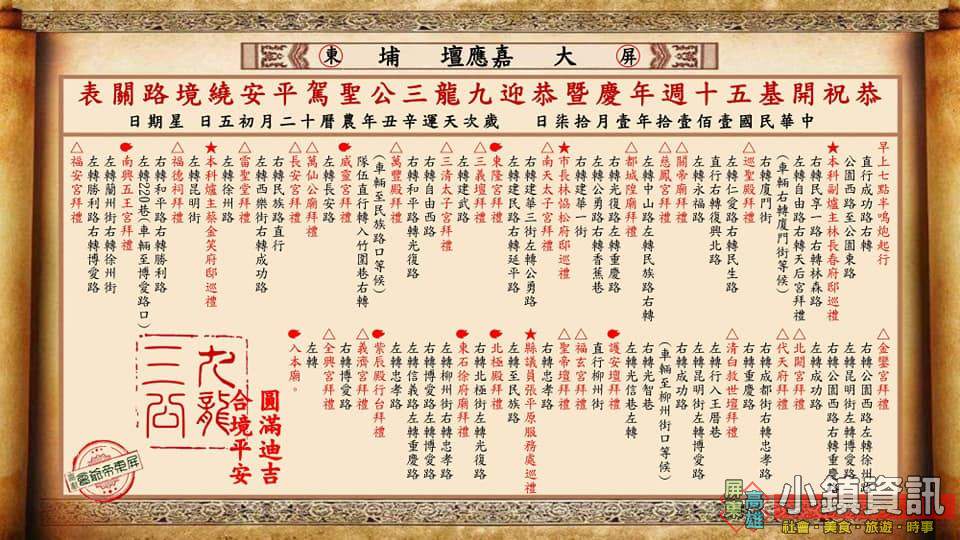 屏 大 嘉應壇 埔 東
恭祝開基五十週年慶暨恭迎九龍三公聖駕平安繞境路關表
中華民國壹佰壹拾年壹月拾柒日 歲次天運辛丑年農曆十二月初五日 星期日
早上七點半鳴炮起行
直行成功路右轉
公園西路至公園東路
★本科副爐主林長春府邸巡禮
右轉民享一路右轉林森路
左轉自由路右轉天后宮拜禮
(車輛右轉廈門街等候)
右轉廈門街
△巡聖殿拜禮
左轉仁愛路右轉民生路
直行右轉復興北路
左轉永福路
△關帝廟拜禮
△慈鳳宮拜禮
左轉中山路左轉民族路右轉
△都城隍廟拜禮
右轉光復路左轉重慶路
左轉公勇路右轉香蕉巷
右轉建華一街
★市長林恊松府邸巡禮
△南天太子宮拜禮
右轉建華三街左轉公勇路
左轉建民路右轉延平路
東隆宮拜禮
△三義壇拜禮
左轉建武路
△三清太子宮拜禮
右轉自由西路
右轉和平路轉光復路
△萬豐殿拜禮
(車輛至民族路口等候)
隊伍直行轉入竹圍巷右轉
威靈宮拜禮
左轉長安路
△萬仙公廟拜禮
△長安宮拜禮
右轉民族路直行
右轉西樂街右轉成功路
△雷聖堂拜禮
左轉徐州路
★本科爐主蔡金笑府邸巡禮
左轉昆明街
△福德祠拜禮
右轉和平路右轉勝利路
左轉蘭州街右轉徐州街
左轉220巷(車輛至博愛路口)
南興五王宮拜禮
左轉勝利路右轉博愛路
△福安宮拜禮
△金鑾宮拜禮
右轉公園西路左轉徐州路
左轉昆明街左轉博愛路
右轉公園西路右轉重慶路
左轉成功路
△北闕宮拜禮
△代天府拜禮
右轉成都街右轉忠孝路
左轉重慶路
△清白救世壇拜禮
左轉行入王厝巷
左轉昆明街左轉博愛路
右轉成功路
(車輛至柳州街口等候)
右轉光智巷
左轉光信巷左轉
護安壇拜禮
直行柳州街
△福玄宮拜禮
△聖帝壇拜禮
右轉忠孝路
★縣議員張平原服務處巡禮
左轉至民族路
北極殿拜禮
右轉北極街左轉光復路
東石徐府廟拜禮
左轉柳州街右轉忠孝路
右轉成功路左轉博愛路
左轉信義路左轉重慶路
左轉忠孝路
紫辰殿行台拜禮
△義濟宮拜禮
右轉博愛路
△全興宮拜禮
左轉
入本廟。
圓滿迪吉
合境平安
九龍
三公
屏東帝爺靈
屏東
高雄
小鎮資訊
社會·美食·旅遊·時事